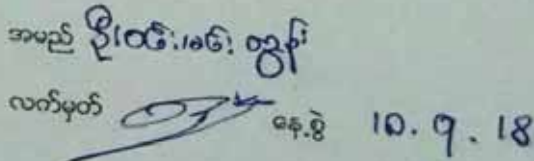 အမည် ဦးဝင်းမင်းထွန်း
လက်မှတ် နေ့စွဲ 10.9.18